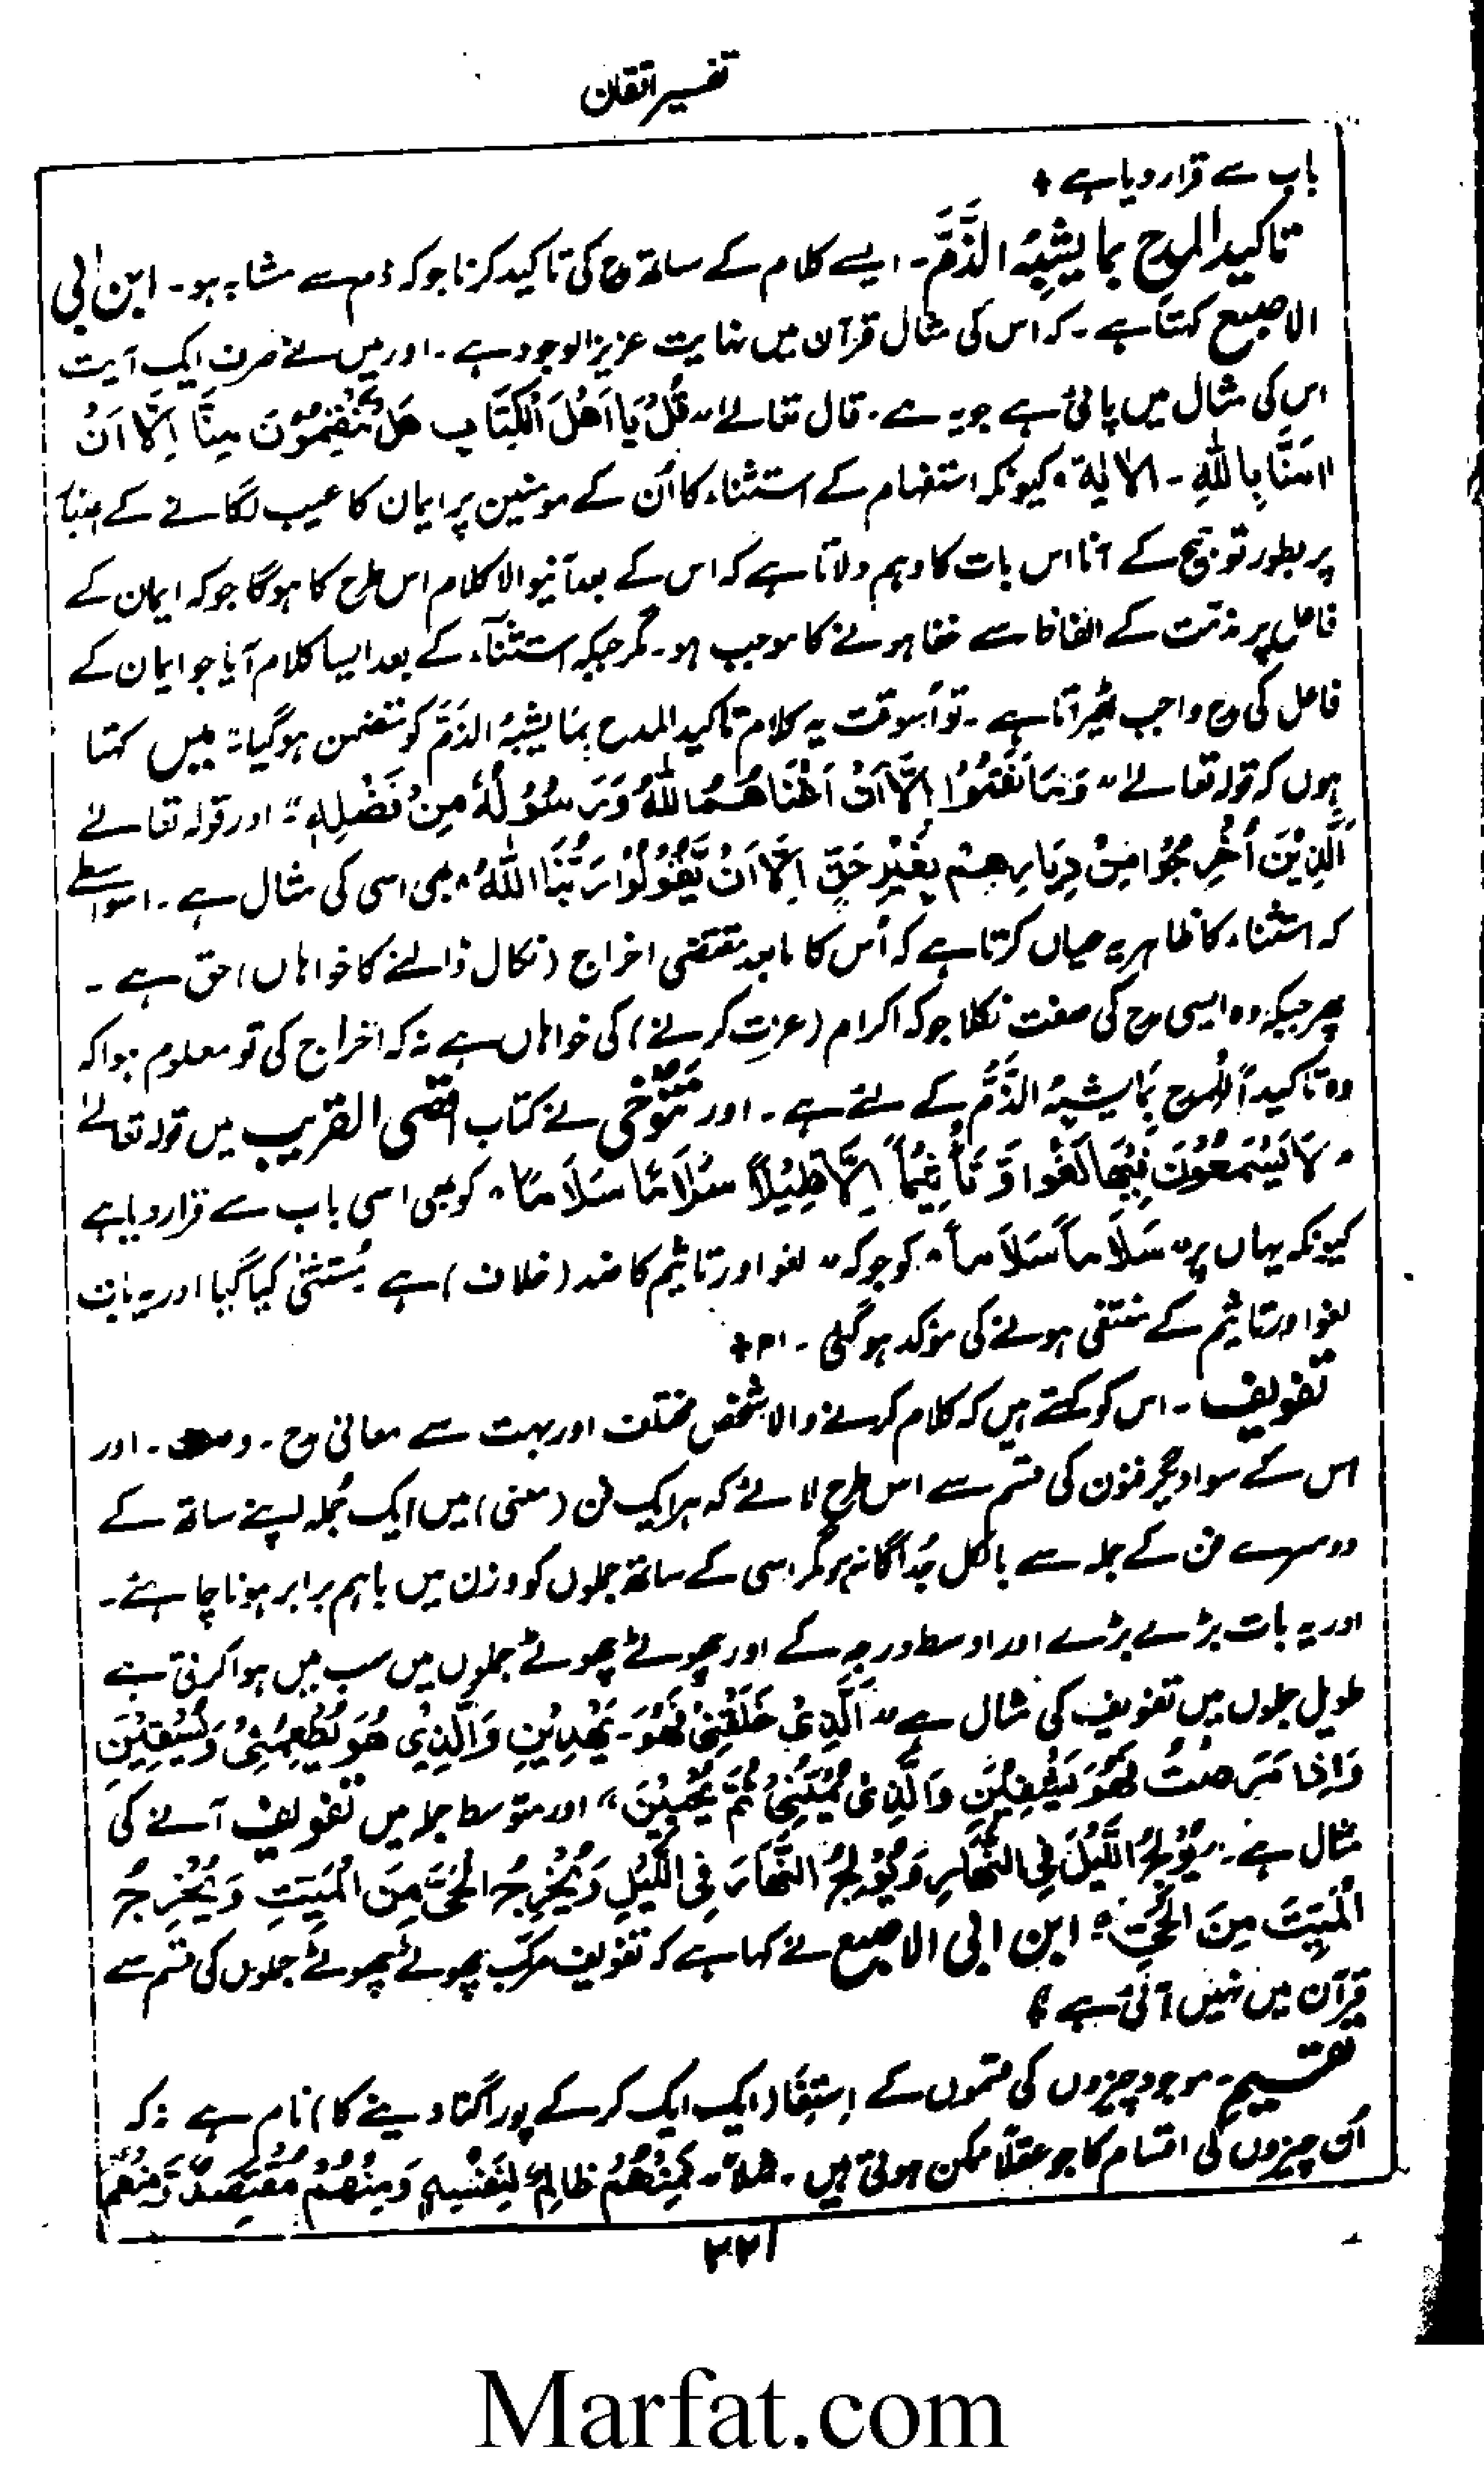 تفسیر اتقان
باب سے قرار دیا ہے +
تاکید المدح بما یشبہُ الذَّمَّ۔ ایسے کلام کے ساتھ مدح کی تاکید کرنا جو کہ ذم سے مشابہ ہو۔ ابن ابی
الاصبع کہتا ہے۔ کہ اس کی مثال قرآن میں نہایت عزیز الوجود ہے۔ اور میں نے صرف ایک آیت
اس کی مثال میں پائی ہے جو یہ ہے۔ قال تعالےٰ "قُلْ یَا اَھْلَ الْکِتَابِ ھَلْ تَنْقِمُوْنَ مِنَّا اِلَّا اَنْ
اٰمَنَّا بِاللّٰہِ ۔ الاٰیۃ" کیونکہ استفہام کے استثناء کا اُن کے مومنین پر ایمان کا عیب لگانے کے
پر بطور توبیخ کے آنا اس بات کا وہم دلاتا ہے کہ اس کے بعد آنیوالا کلام اس طرح کا ہوگا جو کہ ایمان کے
فاعل پر مذمت کے الفاظ سے خفا ہونے کا موجب ہو۔ مگر جبکہ استثنآء کے بعد ایسا کلام آیا جو ایمان کے
فاعل کی مدح واجب ٹھیراتا ہے۔ تو اُسوقت یہ کلام تاکید المدح بِمَا یشبہُ الذَّمَّ کو متضمن ہوگیا: میں کہتا
ہوں کہ قولہ تعالےٰ "وَمَا نَقَمُوْا اِلَّا اَنْ اَغْنَاھُمُ اللّٰہُ وَرَسُوْلُہٗ مِنْ فَضْلِہٖ" اور قولہ تعالےٰ
اَلَّذِیْنَ اُخْرِجُوْا مِنْ دِیَارِھِمْ بِغَیْرِ حَقٍّ اِلَّا اَنْ یَّقُوْلُوْا رَبُّنَا اللّٰہُ" بھی اسی کی مثال ہے۔ اسواسطے
کہ استثناء کا ظاہر یہ عیاں کرتا ہے کہ اُس کا مابعد مقتضی اخراج (نکال ڈالنے کا خواہاں) حق ہے۔
پھر جبکہ وہ ایسی مدح کی صفت نکلا جو کہ اکرام (عزت کرنے) کی خواہاں ہے نہ کہ اخراج کی تو معلوم ہوا کہ
وہ تاکید المدح بِمَا یشبہُ الذَّمَّ کے لئے ہے۔ اور تنوخی نے کتاب اقصی القریب میں قولہ تعالےٰ
"لَا یَسْمَعُوْنَ فِیْھَا لَغْوًا وَّ تَأْثِیْمًا اِلَّا قِیْلًا سَلَامًا سَلَامًا" کو بھی اسی باب سے قرار دیا ہے
کیونکہ یہاں پر "سَلَاماً سَلَاماً" کو جو کہ "لغو اور تاثیم کا ضد (خلاف) ہے مُستثنٰی کیا گیا اور یہ بات
لغو اور تاثیم کے منتفی ہونے کی مؤکد ہوگئی۔ اھ +
تفویف۔ اس کو کہتے ہیں کہ کلام کرنے والا شخص مختلف اور بہت سے معانی مدح۔ وصف۔ اور
اس کے سوا دیگر فنون کی قسم سے اس طرح لائے کہ ہر ایک فن (معنی) میں ایک جُملہ اپنے ساتھ کے
دوسرے فن کے جملہ سے بالکل جُداگانہ ہو مگر اسی کے ساتھ جملوں کو وزن میں باہم برابر ہونا چاہئے۔
اور یہ بات بڑے بڑے اور اوسط درجہ کے اور چھوٹے چھوٹے جملوں میں سب میں ہوا کرتی ہے
طویل جملوں میں تفویف کی مثال ہے "اَلَّذِیْ خَلَقَنِیْ فَھُوَ۔ یَھْدِیْنِ وَالَّذِیْ ھُوَ یُطْعِمُنِیْ وَیَسْقِیْنِ
وَاِذَا مَرِضْتُ فَھُوَ یَشْفِیْنِ وَالَّذِیْ یُمِیْتُنِیْ ثُمَّ یُحْیِیْنَ" اور متوسط جملہ میں تفویف آنے کی
مثال ہے۔ "یُوْلِجُ اللَّیْلَ فِی النَّھَارِ وَیُوْلِجُ النَّھَارَ فِی اللَّیْلِ وَیُخْرِجُ الْحَیَّ مِنَ الْمَیِّتِ وَیُخْرِجُ
الْمَیِّتَ مِنَ الْحَیِّ" ابن ابی الاصبع نے کہا ہے کہ تفویف مرکب چھوٹے چھوٹے جملوں کی قسم سے
قرآن میں نہیں آئی ہے +
تقسیم۔ موجود چیزوں کی قسموں کے اِستِیفَا (ایک ایک کر کے پورا گنا دینے کا) نام ہے نہ کہ
اُن چیزوں کی اقسام کا جو عقلاً ممکن ہوتی ہیں۔ مثلاً "فَمِنْھُمْ ظَالِمٌ لِّنَفْسِہٖ وَمِنْھُمْ مُّقْتَصِدٌ وَمِنْھُمْ
۲۲۱
Marfat.com